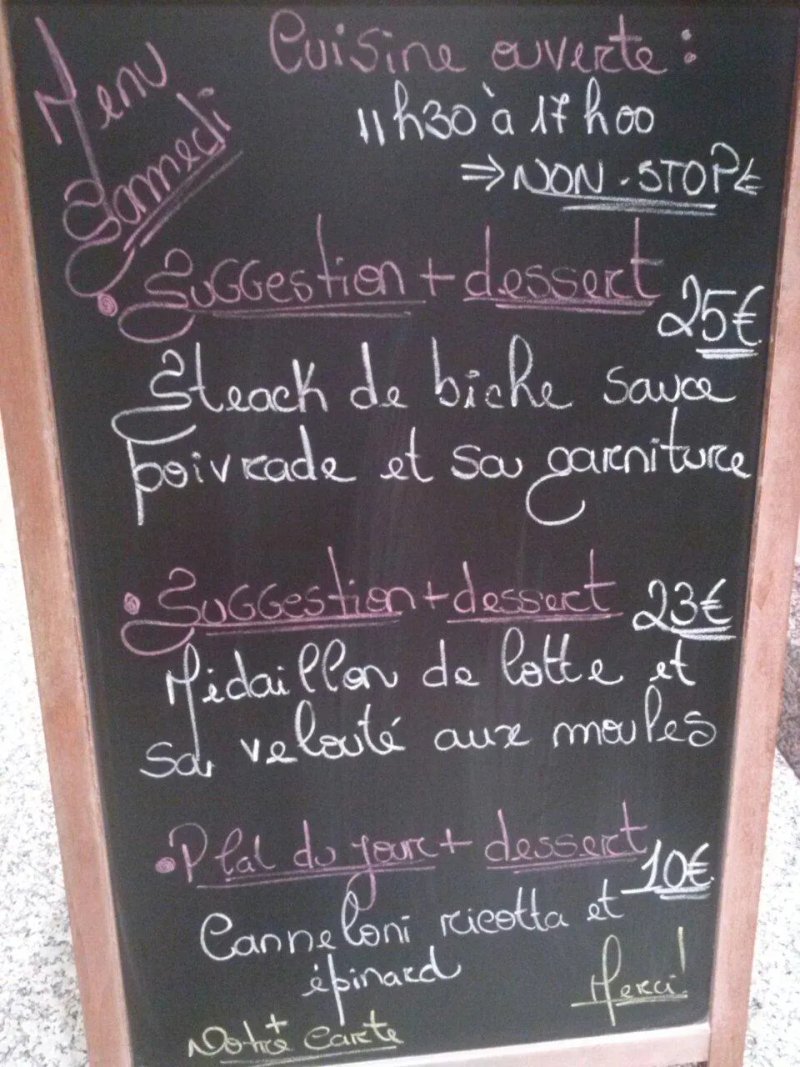 Menu
Samedi
Cuisine ouverte :
11h30 à 17h00
⇒ NON-STOP ⇐
• Suggestion + dessert 25€
Steack de biche sauce
poivrade et sa garniture
• Suggestion + dessert 23€
Médaillon de lotte et
sa velouté aux moules
• Plat du jour + dessert 10€
Canneloni ricotta et
épinard
Merci!
+
Notre Carte